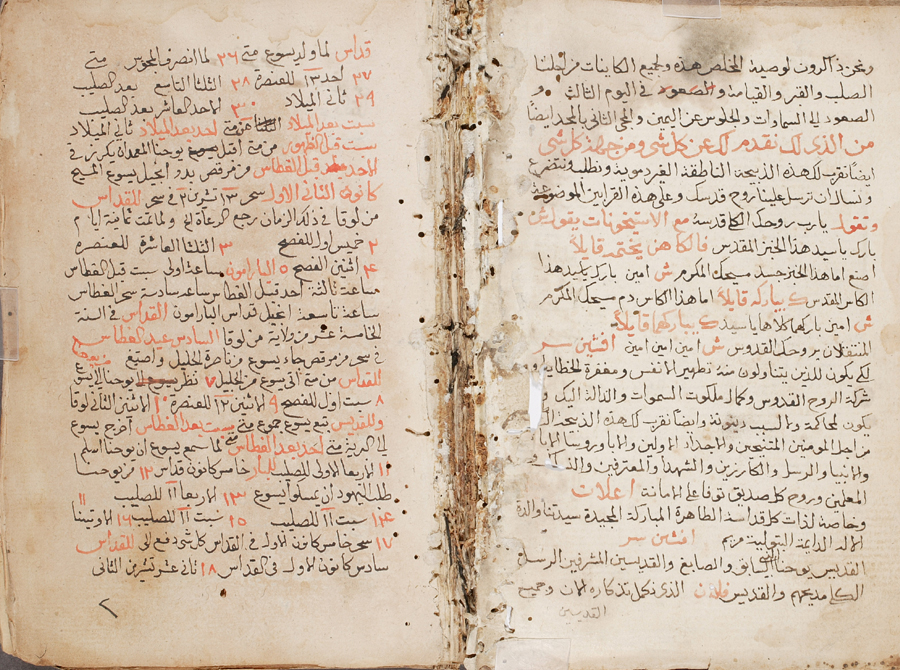 ونحن ذاكرون لوصية المخلص هذه ولجميع الكاينات من اجلنا
الصلب والقبر والقيامة والصعود في اليوم الثالث و
الصعود الى السماوات والجلوس عن اليمين والمجي الثاني المجد ايضا
من الذي لك نقدم لك عن كل شي ومن جهة كل شي
ايضا نقرب لك هذه الذبيحة الناطقة الغير دموية ونطلب ونتضرع
ونسالك ان ترسل علينا روح قدسك وعلى هذه القرابين الموضوعة
وتقول يارب روحك الكلي قدسه مع الاستيخونات يقول ش
بارك ياسيد هذا الخبز المقدس فالكاهن يختمه قايلا
اصنع اما هذا الخبز جسد مسيحك المكرم ش امين بارك ياسيد هذا
الكاس المقدس ك يباركه قايلا اما هذا الكاس دم مسيحك المكرم
ش امين باركهما كلاهما ياسيد ك يباركهما قايلا
المنتقلان بروحك القدوس ش امين امين امين افشين سر
لكي يكون للذين يتناولون منه تطهير النفس ومغفرة الخطايا
شركة الروح القدوس وكمال ملكوت السموات والدالة اليك
يكون لمحاكمة ولا لسبب دينونة وايضا نقرب لك هذه الذبيحة
من اجل المومنين المتنيحين والاجداد الاولين والابا وروسا الابا
والانبيا والرسل والكارزين والشهدا والمعترفين
المعلمين وروح كل صديق توفا على الامانة اعلان
وخاصة لذات كل قداسة الطاهرة المباركة المجيدة سيدتنا والدة
الاله الدايمة البتولية مريم افشين سر
القديس يوحنا السابق والصابغ والقديسين المشرفين الرسل
الكلي مديحهم والقديس فلان الذي نكمل تذكاره الان وجميع
القديسين
قداس لما ولد يسوع متى ٢٦ لما انصرف المجوس متى
٢٧ احد ١٣ للعنصرة ٢٨ الثلثا التاسع بعد الصليب
٢٩ ثاني الميلاد ٣٠ الاحد العاشر بعد الصليب
سبت بعد الميلاد من متى احد بعد الميلاد ثاني الميلاد
سبت قبل الظهور من متى اقبل يوحنا المعمدان يكرز في
الاحد قبل الغطاس من مرقص بدو انجيل يسوع المسيح
كانون الثاني الاول سحر ١٣ تشرين ٢ في سحر للقداس
من لوقا في ذلك الزمان رجع الرعاة الى ولما تمت ثمانية ايام
٢ خميس اول للفصح ٣ الثلثا العاشرة للعنصرة
٤ اثنين الفصح ٥ البارامون ساعة اولى سبت قبل الغطاس
ساعة ثالثة احد قبل الغطاس ساعة سادسة سحر الغطاس
ساعة تاسعة انجيل قداس البارامون القداس في السنة
الخامسة عشر من ولاية من لوقا السادس عيد الغطاس
في سحر من مرقص جاء يسوع من ناصرة الجليل واصتبغ
للقداس من متى اتى يسوع من الجليل ٧ نظر يوحنا
٨ سبت اول للفصح ٩ الاثنين ١٢ للعنصرة ١٠ الاثنين الثاني لوقا
وللقديس تبع يسوع جموع متى سبت بعد الغطاس اخرج يسوع
الى البرية متى احد بعد الغطاس لما سمع يسوع ان يوحنا اسلم
١١ الاربعا الاولى للصليب للبار خامس كانون قداس ١٢ من يوحنا
طلب اليهود ان يمسكوا يسوع ١٣ الاربعا ١١ للصليب
١٤ سبت ١١ للصليب ١٥ سبت ١١ للصليب ١٦
١٧ سحر خامس كانون الاول في القداس كل شي دفع الي للقداس
سادس كانون الاول في القداس ١٨ ثاني عشر تشرين الثاني
٢